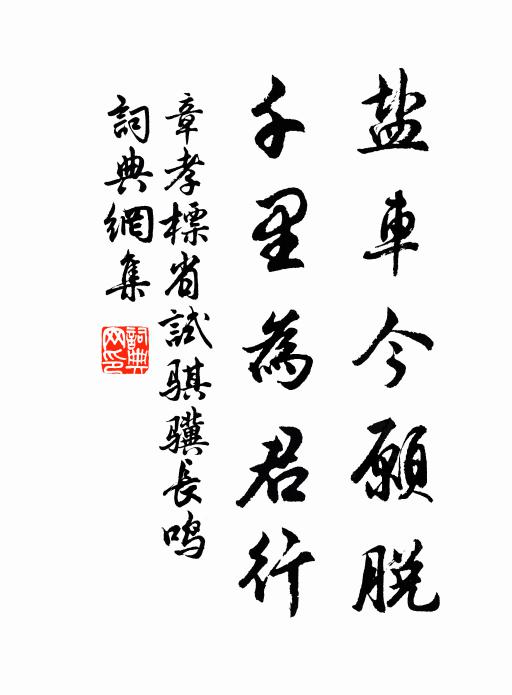 盐車今願脱
千里為君行
章孝標省試骐骥長鸣
詞典網集
詞典網印